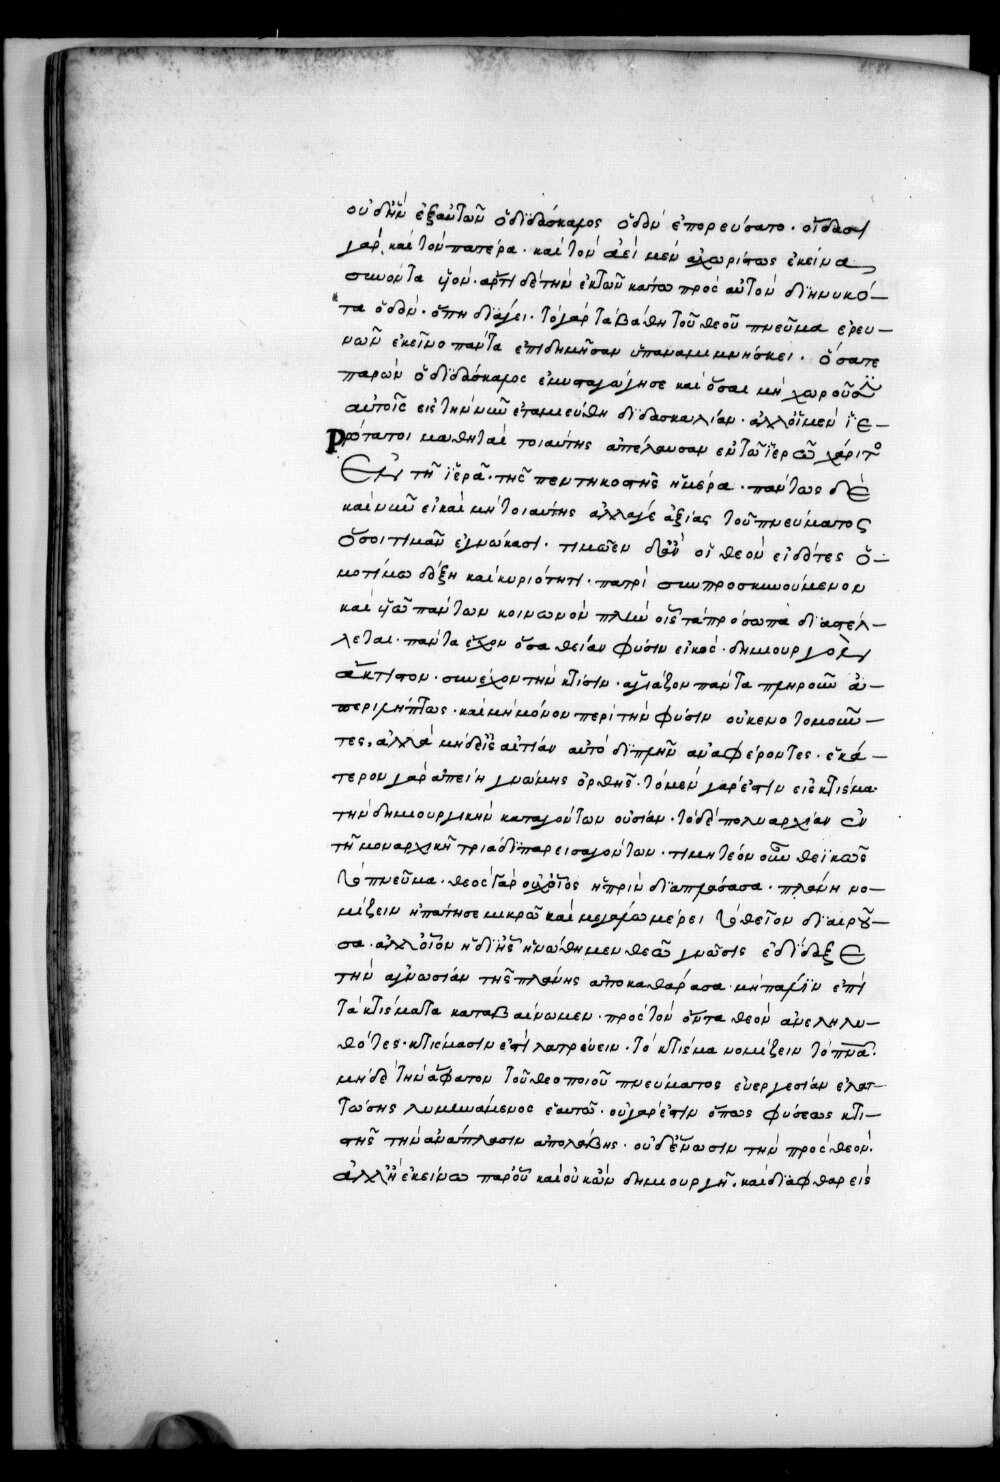 οὐδ' ἣν ἐξ αὐτῶν ὁ διδάσκαλος ὁδὸν ἐπορεύσατο· οἴδασι
γὰρ καὶ τὸν πατέρα· καὶ τὸν ἀεὶ μὲν ἀχωρίστως ἐκείνω
συνόντα υἱόν· ἄρτι δὲ τὴν ἐκ τῶν κάτω πρὸς αὐτὸν διηνυκό-
τα ὁδόν· ὅπη διάγει· τὸ γὰρ τὰ βάθη τοῦ θεοῦ πνεῦμα ἐρευ-
νῶν ἐκεῖνο πάντα ἐπιδημῆσαν ὑπαναμιμνήσκει· ὅσα τε
παρὼν ὁ διδάσκαλος ἐμυσταγώγησε καὶ ὅσα μὴ χωροῦσιν
αὐτοῖς εἰς τὴν νῦν ἐταμιεύθη διδασκαλίαν· ἀλλ' οἱ μὲν ἱε-
ρώτατοι μαθηταὶ τοιαύτης ἀπέλαυσαν ἐν τῶ ἱερῶ χάριτος
ἐν τῆ ἱερᾶ· τῆς πεντηκοστῆς ἡμέρα· πάντως δὲ
καὶ νῦν εἰ καὶ μὴ τοιαύτης ἀλλά γε ἀξίας τοῦ πνεύματος
ὅσοι τιμᾶν ἐγνώκασι· τιμῶεν δ' ἂν οἱ θεὸν εἰδότες ὁ-
μοτίμω δόξη καὶ κυριότητι· πατρὶ συμπροσκυνούμενον
καὶ υἱῶ πάντων κοινωνὸν πλὴν οἷς τὰ πρόσωπα διαστέλ-
λεται· πάντα ἔχον ὅσα θείαν φύσιν εἰκός· δημιουργὸν
ἄκτιστον· συνέχον τὴν κτίσιν· ἁγιάζον πάντα πληροῦν ἀ-
περιλήπτως· καὶ μὴ μόνον περὶ τὴν φύσιν οὐ καινοτομοῦν-
τες, ἀλλὰ μηδ' εἰς αἰτίαν αὐτὸ διπλῆν ἀναφέροντες· ἑκά-
τερον γὰρ ἀπείη γνώμης ὀρθῆς· τὸ μὲν γάρ ἐστιν εἰς κτίσμα
τὴν δημιουργικὴν καταγόντων οὐσίαν· τὸ δὲ πολυαρχίαν ἐν
τῆ μοναρχικῆ τριάδι παρεισαγόντων· τιμητέον οὖν θεϊκῶς
τὸ πνεῦμα· θεὸς γὰρ οὐχ οἷος ἡ πρὶν διαπλάσασα· πλάνη νο-
μίζειν ἠπάτησε μικρῶ καὶ μεγάλω μέρει τὸ θεῖον διαιροῦ-
σα· ἀλλ' οἷον ἡ δι' ἧς ἡνώθημεν θεῶ γνῶσις ἐδίδαξε
τὴν ἀγνωσίαν τῆς πλάνης ἀποκαθάρασα· μὴ πάλιν ἐπὶ
τὰ κτίσματα καταβαίνωμεν· πρὸς τὸν ὄντα θεὸν ἀνεληλυ-
θότες· κτίσμασίν ἐστι λατρεύειν· τὸ κτίσμα νομίζειν τὸ πνα·
μηδὲ τὴν ἄφατον τοῦ θεοποιοῦ πνεύματος εὐεργεσίαν ἐλατ-
τώσης λυμαινόμενος ἑαυτῶ· οὐ γάρ ἐστιν ὅπως φύσεως κτι-
στῆς τὴν ἀνάπλασιν ἀπολάβης· οὐδ' ἕνωσιν τὴν πρὸς θεόν·
ἀλλ' ἢ ἐκείνω παρ' οὗ καὶ οὐκ ὢν δημιουργῆ· καὶ διαφθαρεὶς